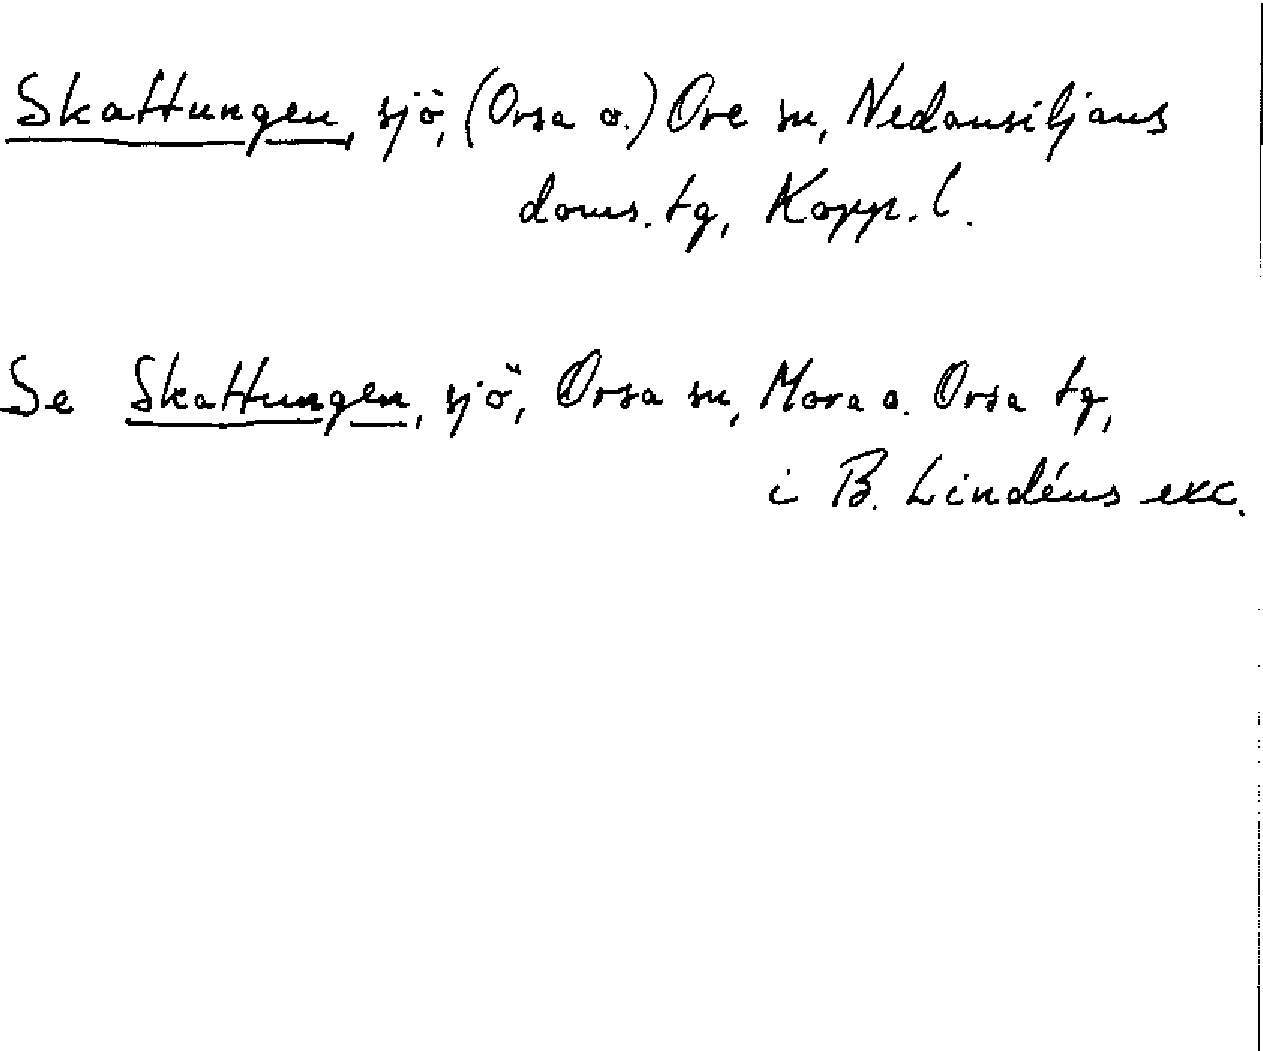 Skattungen, sjö, (Orsa o.) Ore sn, Nedansiljans
doms. tg, Kopp. l.
Se Skattungen, sjö, Orsa sn, Mora o. Orsa tg,
i B. Lindéns exc.